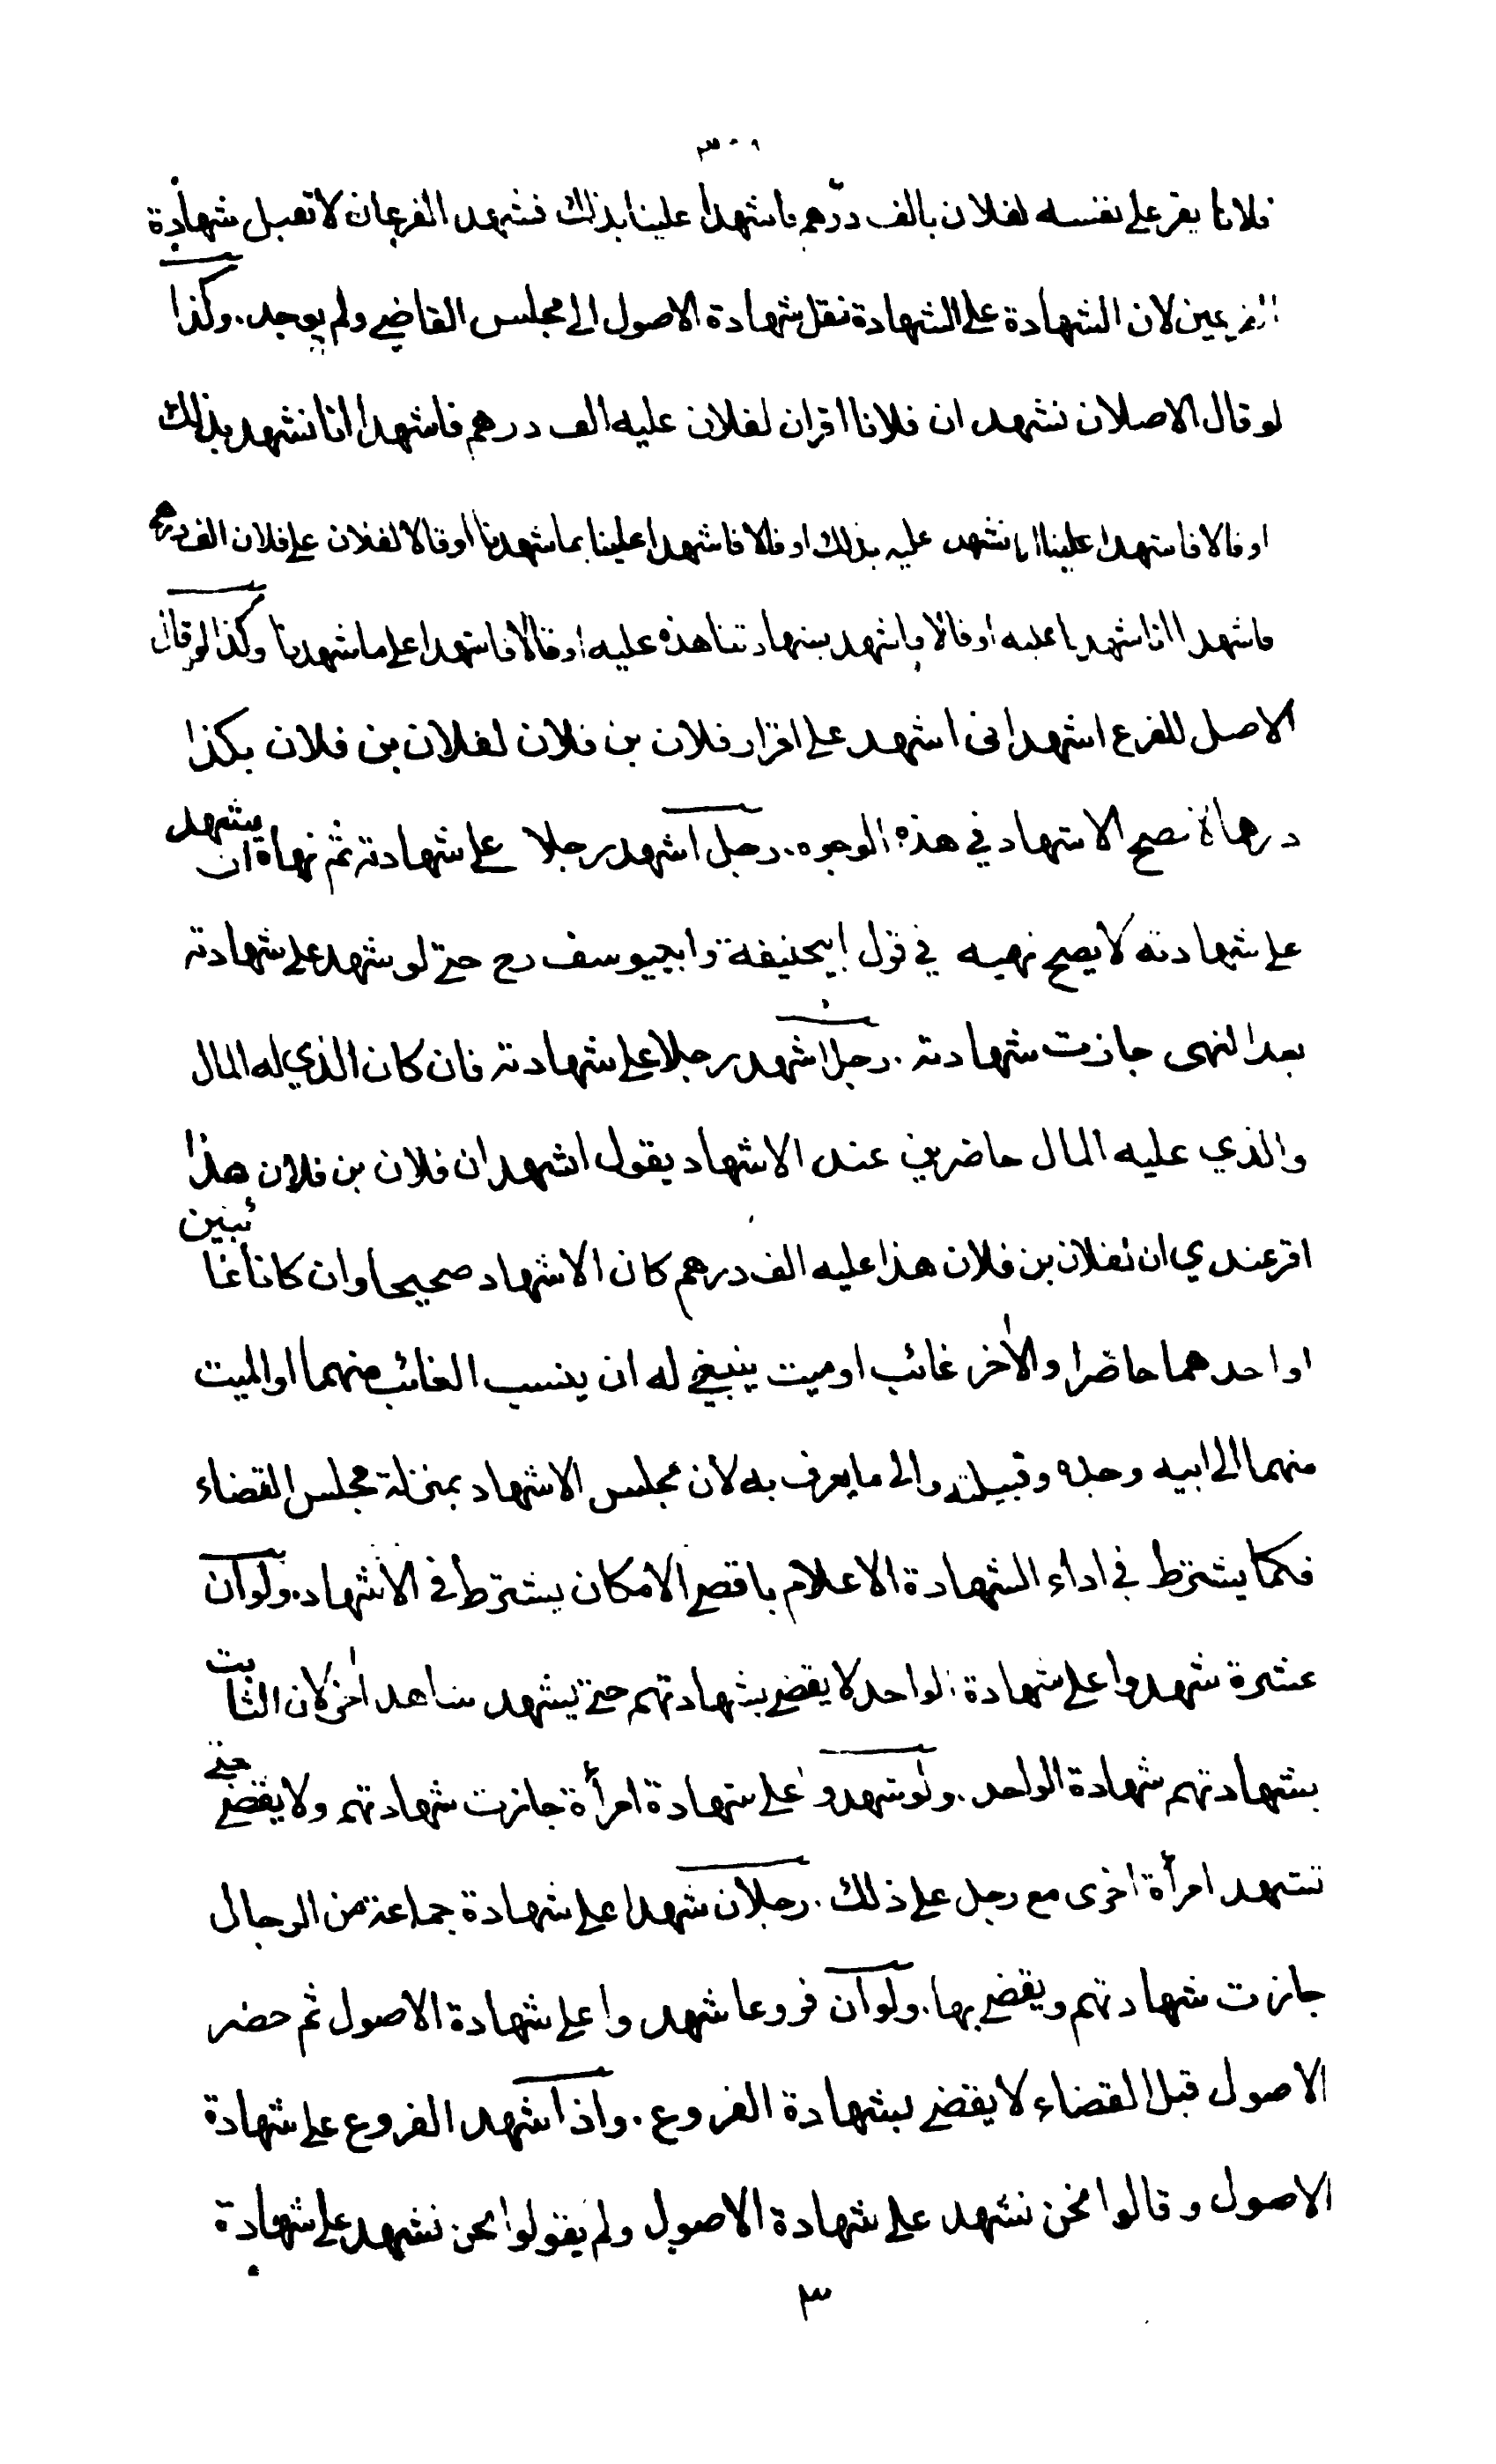 ٣٠١
فلانا يقر على نفسه لفلان بالف درهم فاشهدا علينا بذلك فشهد الفرعان لا تقبل شهادة
الفرعين لان الشهادة على الشهادة نقل شهادة الاصول الى مجلس القاضي ولم يوجد. وكذا
لو قال الاصلان نشهد ان فلانا اقر ان لفلان عليه الف درهم فاشهدا انا نشهد بذلك
او قالا فاشهدا علينا انا نشهد عليه بذلك او قالا فاشهدا علينا بما شهدنا او قالا لفلان على فلان الف درهم
فاشهدا انا شهدنا عليه او قالا فاشهد بشهادتنا هذه عليه او قالا فاشهدا على ما شهدنا وكذا لو قال
الاصل للفرع اشهد انى اشهد على اقرار فلان بن فلان لفلان بن فلان بكذا
درهما لا يصح الاشهاد في هذه الوجوه. رجل اشهد رجلا على شهادته ثم نهاه ان يشهد
على شهادته لا يصح نهيه في قول ابيحنيفة وابييوسف رح حتى لو شهد على شهادته
بعد النهى جازت شهادته. رجل اشهد رجلا على شهادته فان كان الذي له المال
والذي عليه المال حاضرين عند الاشهاد يقول اشهد ان فلان بن فلان هذا
اقر عندي ان لفلان بن فلان هذا عليه الف درهم كان الاشهاد صحيحا وان كانا غائبين
او احدهما حاضرا والآخر غائب او ميت ينبغي له ان ينسب الغائب منهما او الميت
منهما الى ابيه وجده وقبيلته والى ما يعرف به لان مجلس الاشهاد بمنزلة مجلس القضاء
فكما يشترط في اداء الشهادة الاعلام باقصى الامكان يشترط في الاشهاد. ولو ان
عشرة شهدوا على شهادة الواحد لا يقضي بشهادتهم حتى يشهد شاهد آخر لان الثابت
بشهادتهم شهادة الواحد. ولو شهدوا على شهادة امرأة جازت شهادتهم ولا يقضي حتى
تشهد امرأة اخرى مع رجل على ذلك. رجلان شهدا على شهادة جماعة من الرجال
جازت شهادتهم ويقضي بها. ولو ان فروعا شهدوا على شهادة الاصول ثم حضر
الاصول قبل القضاء لا يقضي بشهادة الفروع. واذا شهد الفروع على شهادة
الاصول وقالوا نحن نشهد على شهادة الاصول ولم يقولوا نحن نشهد على شهادة
٣